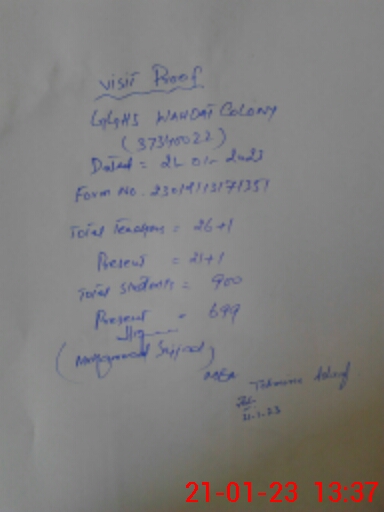 Visit Proof
GGHS WAHDAT COLONY
(37340022)
Dated = 21-01-2023
Form No.
Total Teachers = 26+1
Present = 21+1
Total Students = 900
Present = 699
(Muhammad Sajjad)
MEA
Tehmina Ashraf
21-1-23
21-01-23 13:37